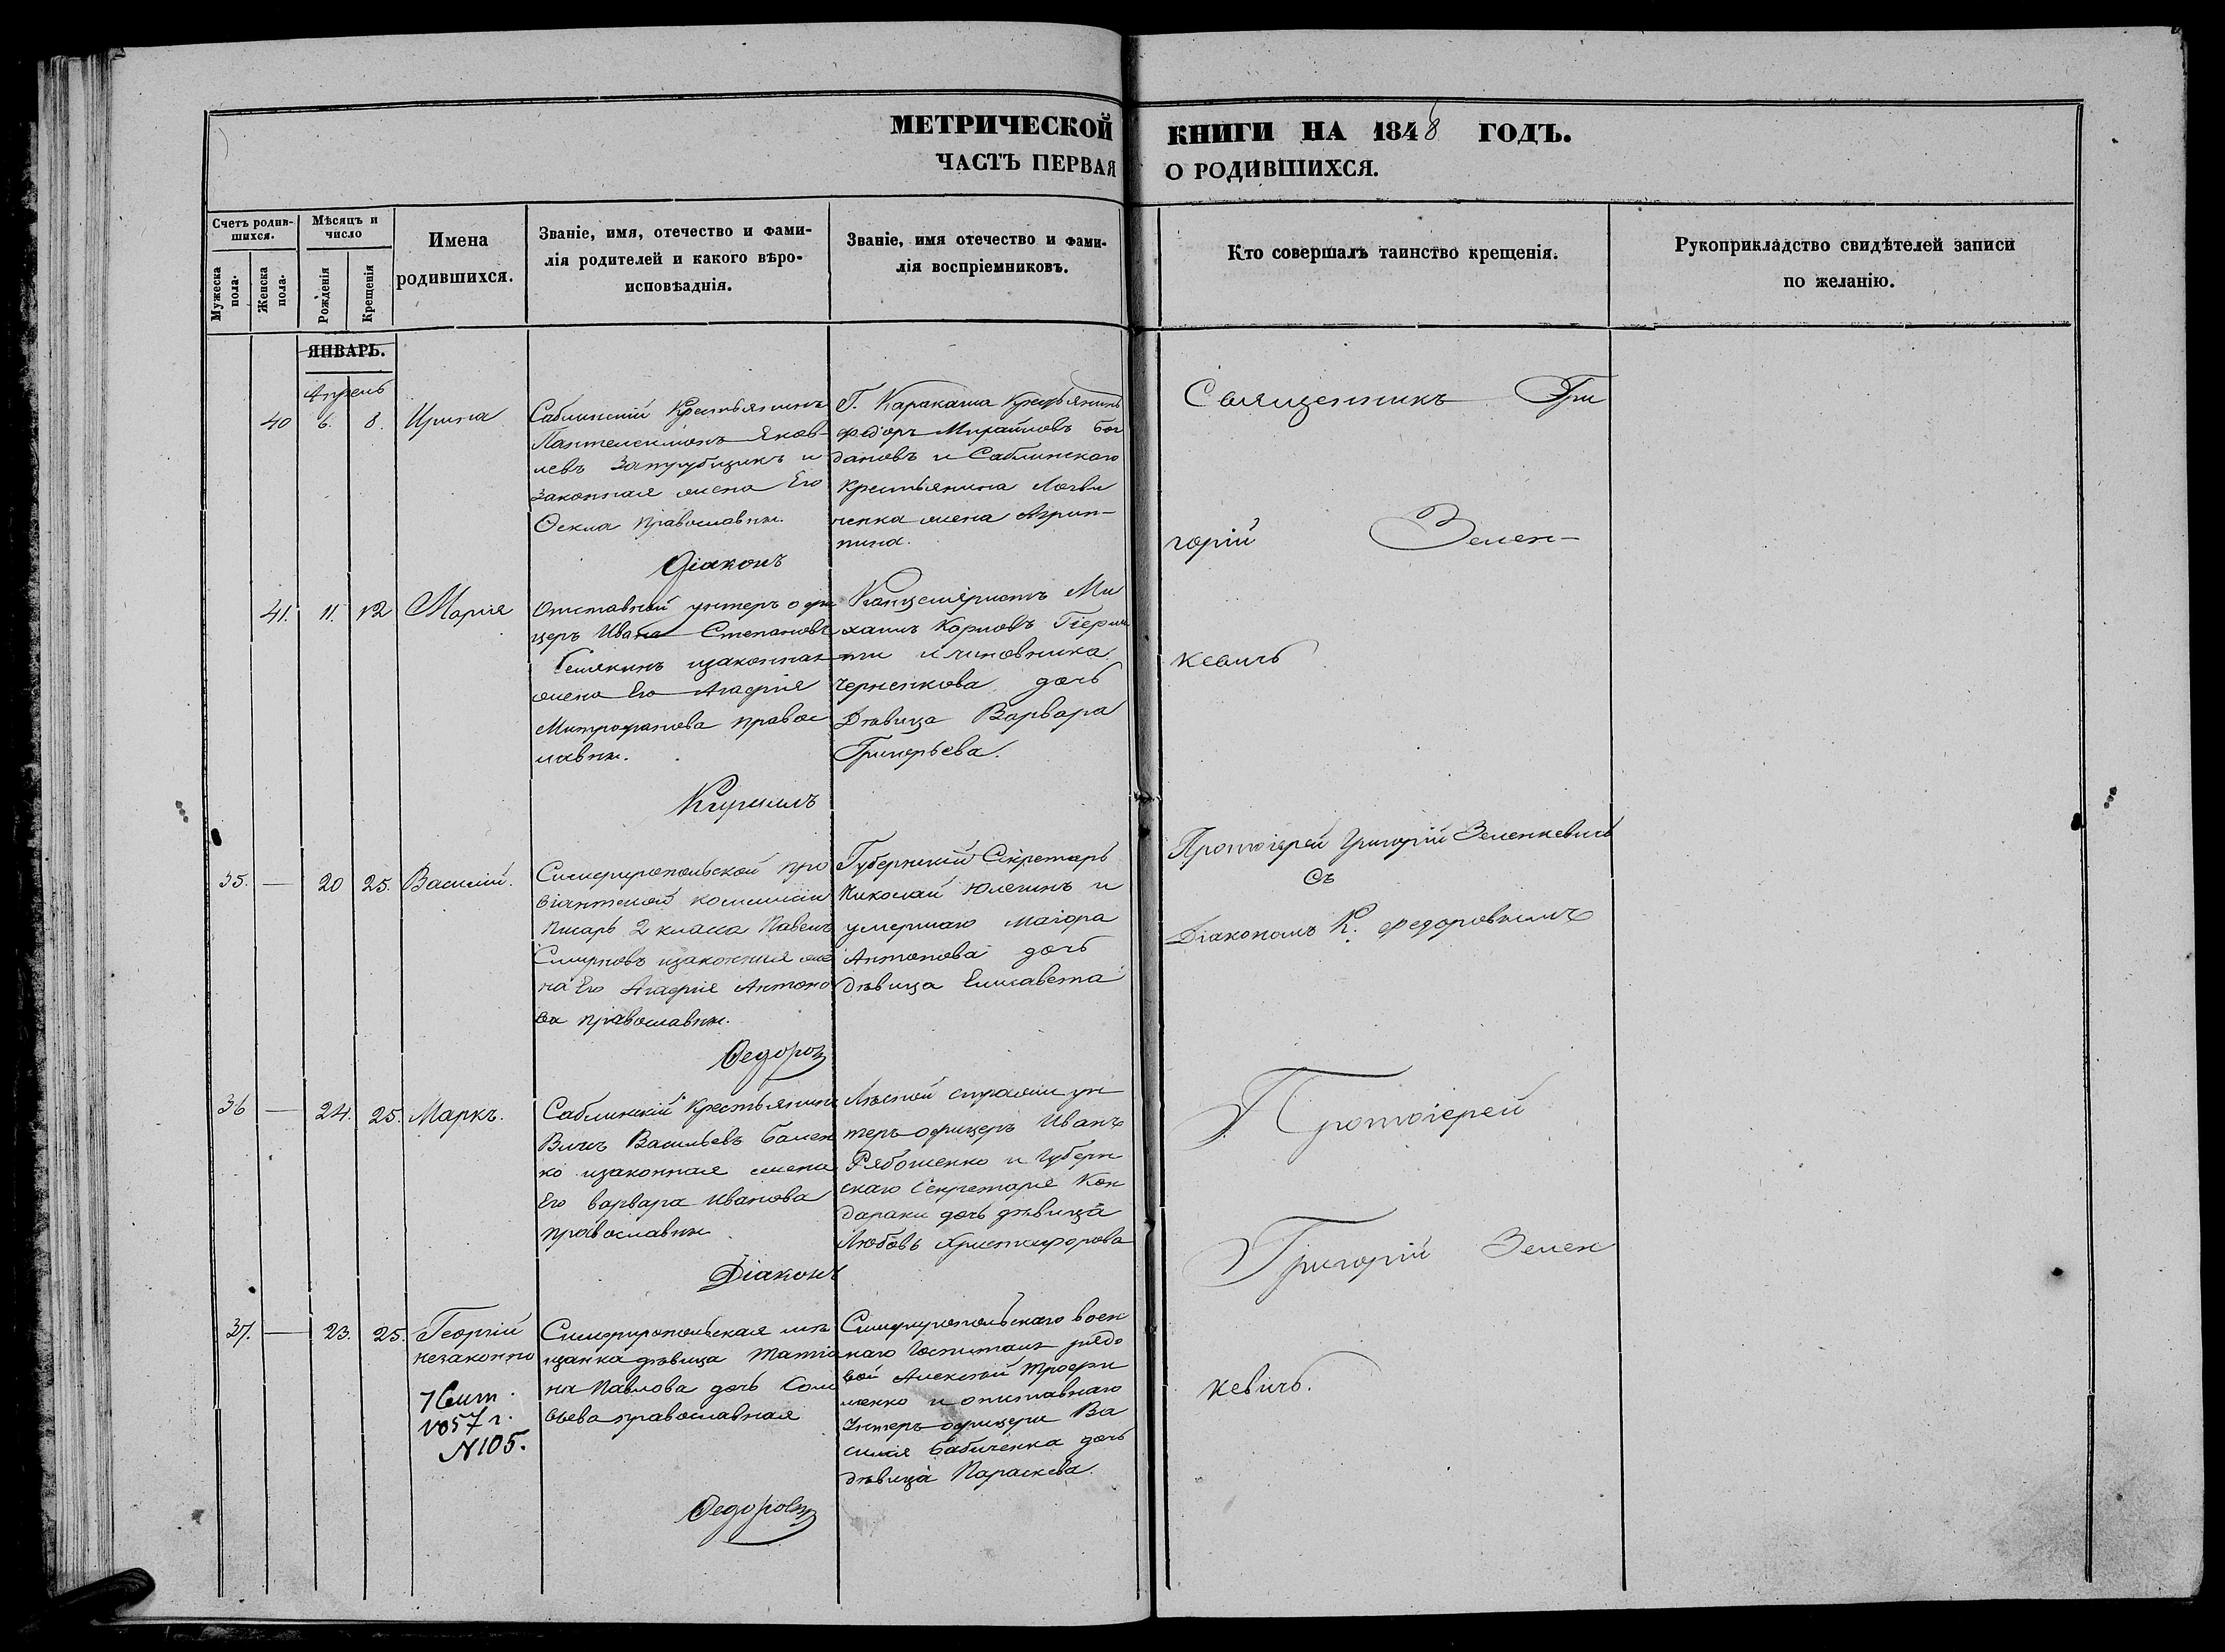 МЕТРИЧЕСКОЙ КНИГИ НА 1848 ГОДЪ.
ЧАСТЬ ПЕРВАЯ О РОДИВШИХСЯ.
Счетъ родив-
шихся.
Мужеска
пола.
Женска
пола.
Мѣсяцъ и
число
Рожденія
Крещенія
Имена
родившихся.
Званіе, имя, отечество и фами-
лія родителей и какого вѣро-
исповѣаднія.
Званіе, имя отечество и фами-
лія воспріемниковъ.
Кто совершалъ таинство крещенія.
Рукоприкладство свидѣтелей записи
по желанію.
ЯНВАРЬ.
Апрель
40 6. 8. Ирина
Саблинскій Крестьянинъ
Пантелеимонъ Яков-
левъ и
законная жена Его
Фекла православны.
Г. Каракаша Крестьянинъ
Федоръ Михайловъ Бог
дановъ и Саблинскаго
крестьянина Логви
ненка жена Агрип-
пина.
Священникъ Гри
горій Зелен-
кевичь
Діаконъ
41. 11. 12 Марія
Отставный унтеръ офи
церъ Иванъ Степановъ
изаконная
жена Его Агафія
Митрофанова правос
лавны.
Канцеляристъ Ми
хаилъ Карповъ
и чиновника
Черненкова дочь
Дѣвица Варвара
Григорьева.
Кирилъ
35. — 20 25. Василій.
Симферопольской про
віантской комиссіи
писарь 2 класса Павелъ
Смирновъ изаконная же
на Его Агафія Антоно
ва православны.
Губернскій Секретарь
Николай Юлегинъ и
умершаго маіора
Антонова дочь
дѣвица Елисавета
Протоіерей Григорій Зеленкевичь
Съ
Діакономъ К. Федоровымъ
Федоров
36 — 24. 25. Маркъ.
Саблинскій Крестьянинъ
Васильевъ
ко изаконная жена
Его варвара Иванова
православны
Лѣсной стражи ун
теръ офицеръ Иванъ
Рябошенко и Губерн
скаго Секретаря Кон
дараки дочь дѣвица
Любовь Христофорова
Протоіерей
Григорій Зелен
кевичь.
Діаконъ
37. — 23. 25. Георгій
незаконно
1857 г.
N105.
Симферопольская мѣ
щанка дѣвица Татіа
на Павлова дочь Соло
вьева православная
Симферопольскаго воен
наго Госпиталя рядо
вой Алексѣй Трофи
менко и отставнаго
Унтеръ офицера Ва
силія Бабиченка дочь
дѣвица Параскева.
Федоровъ